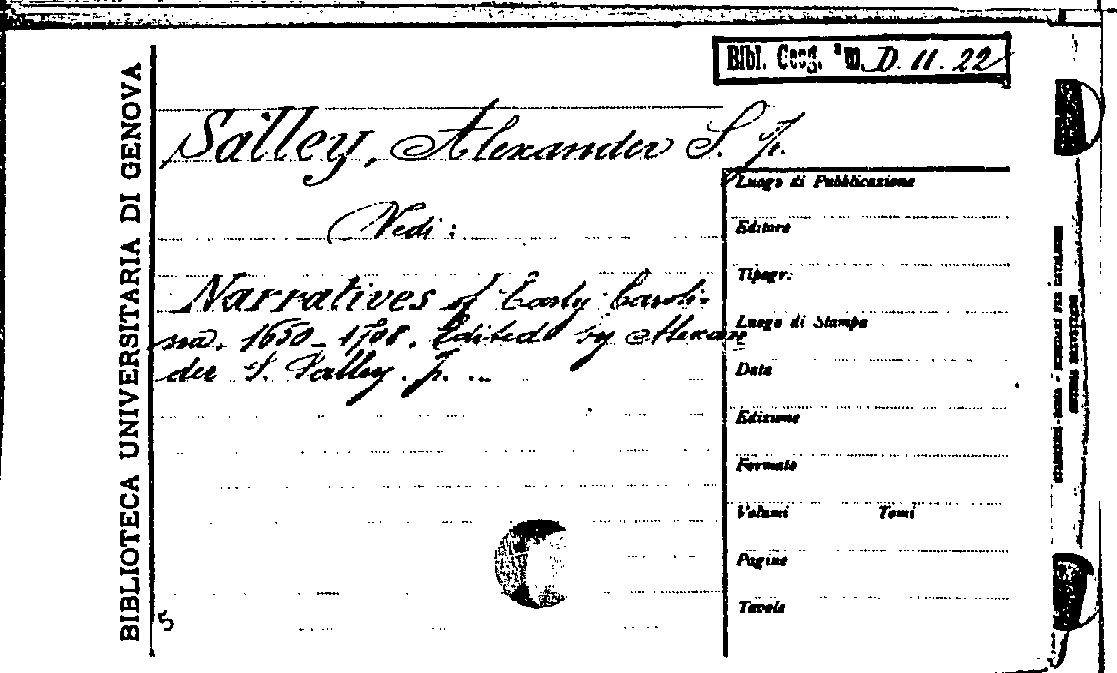 Bibl. Geog. am. D. 11. 22
BIBLIOTECA UNIVERSITARIA DI GENOVA
Salley, Alexander S. Jr.
Vedi:
Narratives of Early Caroli-
na. 1650-1708. Edited by Alexan
der S. Salley. Jr. ...
Luogo di Pubblicazione
Editore
Tipogr.
Luogo di Stampa
Data
Edizione
Formato
Volumi Tomi
Pagine
Tavole
5